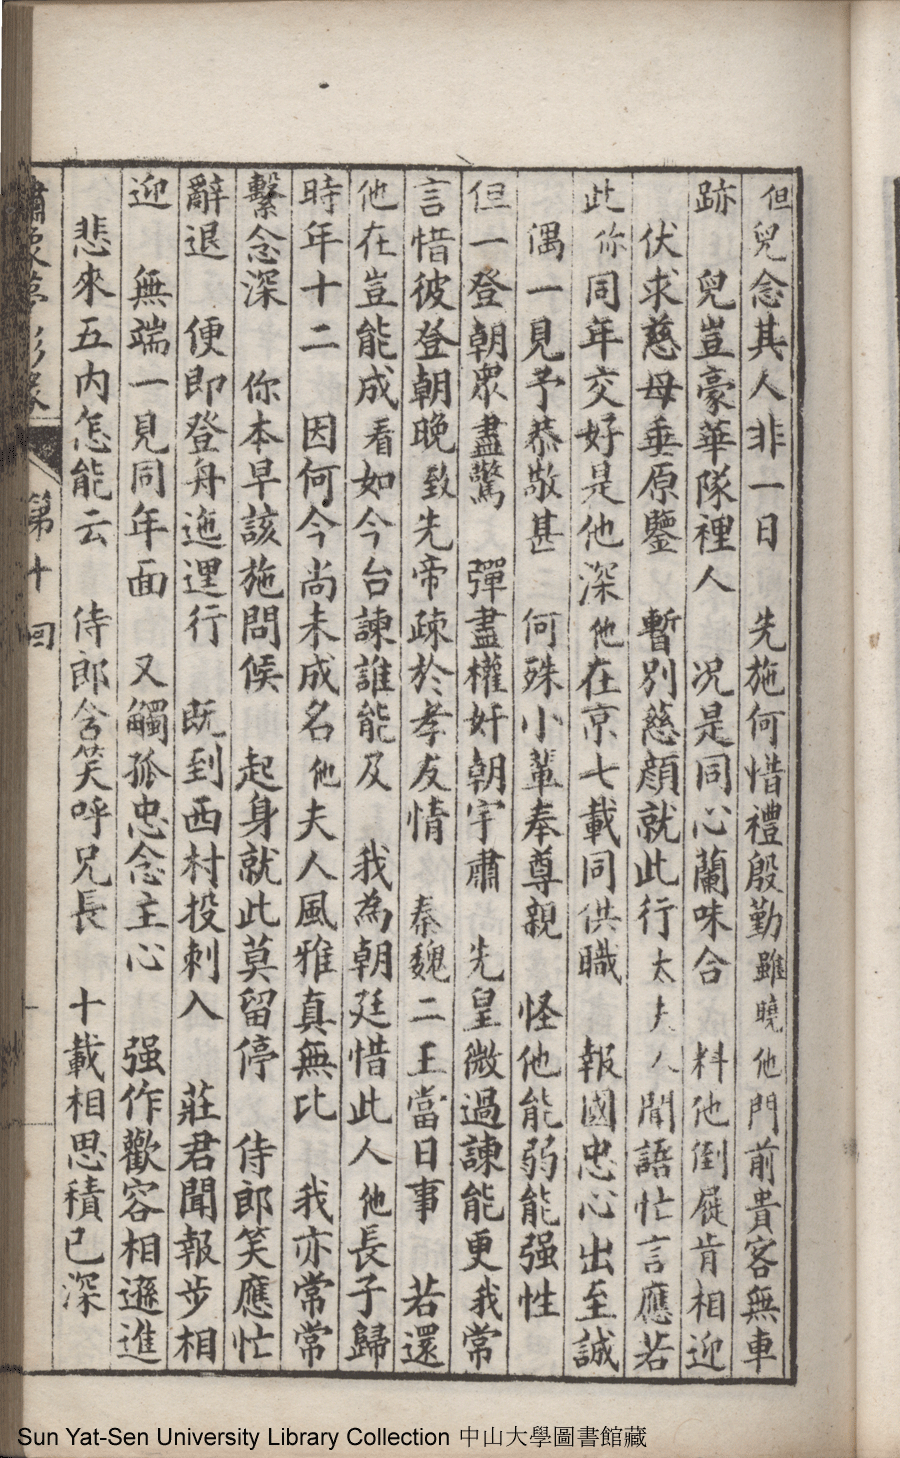 但兒念其人非一日　先施何惜禮殷勤雖曉他門前貴客無車
跡　兒豈豪華隊裡人　況是同心蘭味合　料他倒屣肯相迎
伏求慈母垂原鑒　暫別慈顏就此行太夫人聞語忙言應若
此你同年交好是他深他在京七載同供職　報國忠心出至誠
偶一見予恭敬甚　何殊小輩奉尊親　怪他能弱能强性
但一登朝眾盡驚　彈盡權奸朝宇肅　先皇微過諫能更我常
言惜彼登朝晚致先帝疎於孝友情　秦魏二王當日事　若還
他在豈能成看如今台諫誰能及　我為朝廷惜此人他長子歸
時年十二　因何今尚未成名他夫人風雅真無比　我亦常常
繫念深　你本早該施問候　起身就此莫留停　侍郎笑應忙
辭退　便即登舟迤逕行　既到西村投刺入　莊君聞報步相
迎　無端一見同年面　又觸孤忠念主心　强作歡容相遜進
悲來五內怎能云　侍郎含笑呼兄長　十載相思積已深
第十回
Sun Yat-Sen University Library Collection 中山大學圖書館藏